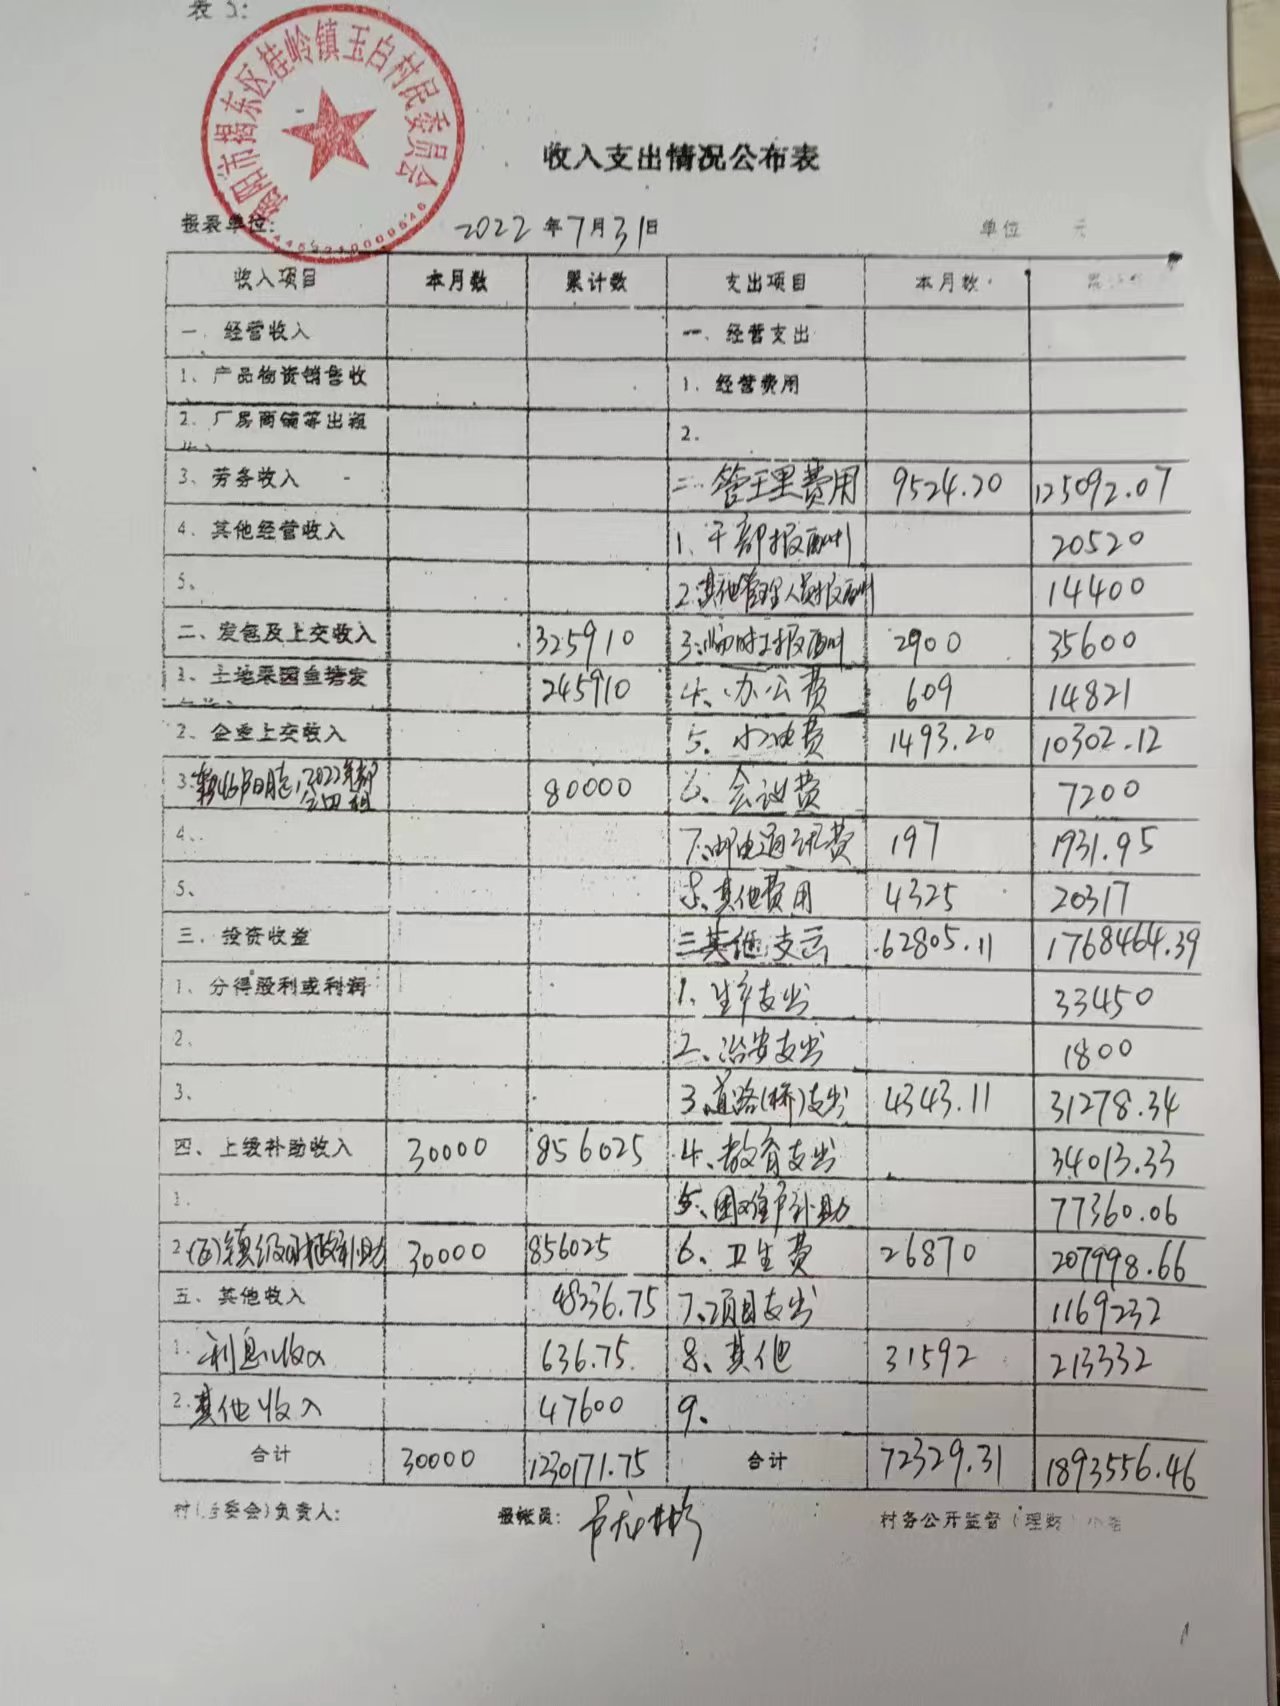 表3:
揭阳市揭东区桂岭镇玉白村民委员会
收入支出情况公布表
报表单位: 2022年7月31日 单位 元
收入项目 本月数 累计数 支出项目 本月数
一. 经营收入 一. 经营支出
1、产品物资销售收 1. 经营费用
2. 厂房商铺等出租 2.
3、劳务收入 二. 管理费用 9524.20 125092.07
4. 其他经营收入 1、干部报酬 20520
5、 2.其他管理人员报酬 14400
二、发包及上交收入 325910 3.临时工报酬 2900 35600
1、土地果园鱼塘发 245910 4、办公费 609 14821
2、企业上交收入 5、水电费 1493.20 10302.12
3. 80000 6、会议费 7200
4. 7.邮电通讯费 197 1931.95
5、 8、其他费用 4325 20317
三. 投资收益 三其他支出 62805.11 1768464.39
1、分得股利或利润 1、生产支出 33450
2. 2、治安支出 1800
3、 3.道路(桥)支出 4343.11 31278.34
四、上级补助收入 30000 856025 4、教育支出 34013.33
1. 5、困难户补助 77360.06
2.(区)镇级财政补助 30000 856025 6、卫生费 26870 207998.66
五、其他收入 48236.75 7、项目支出 1169232
1.利息收入 636.75 8、其他 31592 213332
2.其他收入 47600 9、
合计 30000 1230171.75 合计 72329.31 1893556.46
村(居委会)负责人: 报帐员: 村务公开监督(理财)小组